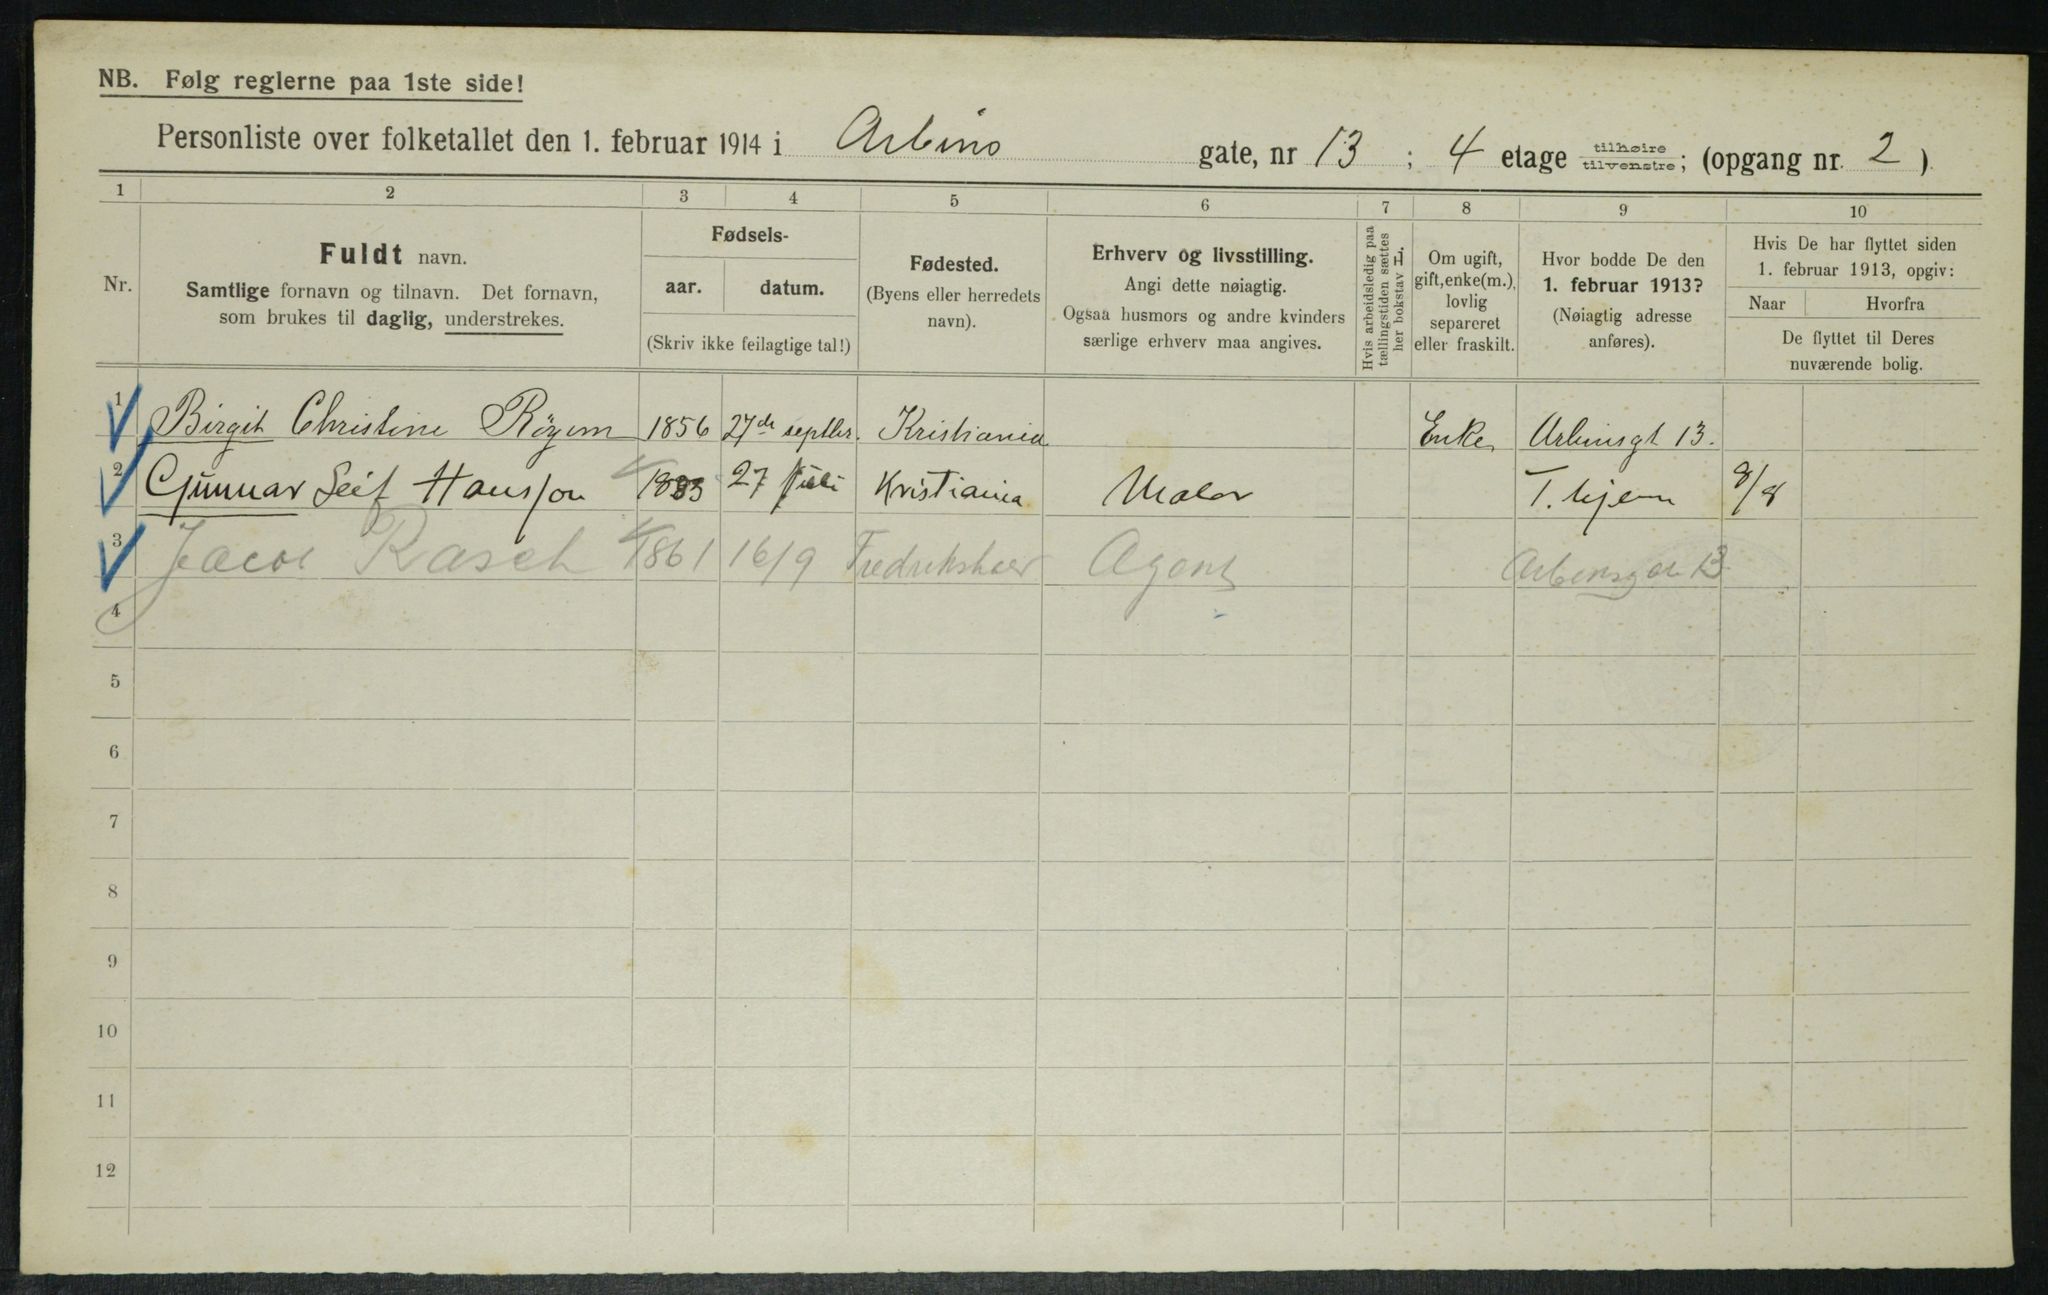 NB. Følg reglerne paa 1ste side!
Personliste over folketallet den 1. februar 1914 i Arbins gate, nr 13 ; 4 etage tilhøire tilvenstre; (opgang nr. 2 ).
1 2 3 4 5 6 7 8 9 10
Nr.
Fuldt navn.
Samtlige fornavn og tilnavn. Det fornavn,
som brukes til daglig, understrekes.
Fødsels-
aar. datum.
(Skriv ikke feilagtige tal!)
Fødested.
(Byens eller herredets
navn).
Erhverv og livsstilling.
Angi dette nøiagtig.
Ogsaa husmors og andre kvinders
særlige erhverv maa angives.
Hvis arbeidsledig paa
tællingstiden sættes
her bokstav L.
Om ugift,
gift, enke(m.),
lovlig
separeret
eller fraskilt.
Hvor bodde De den
1. februar 1913?
(Nøiagtig adresse
anføres).
Hvis De har flyttet siden
1. februar 1913, opgiv:
Naar Hvorfra
De flyttet til Deres
nuværende bolig.
1 Birgit Christine 1856 27de septbr. Kristiania Enke Arbinsgt 13.
2 Gunnar Leif Hansson 1883 27 Juli Kristiania Maler T. hjem 8/8
3 Jacob Rasch 1861 16/9 Fredrikshald Agent 13
4
5
6
7
8
9
10
11
12